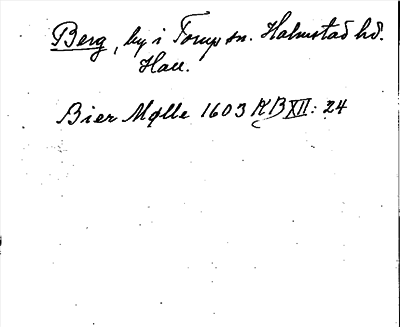 Berg, by i Torup sn. Halmstad hd.
Hall.
Bier Mølle 1603 KB XII: 24